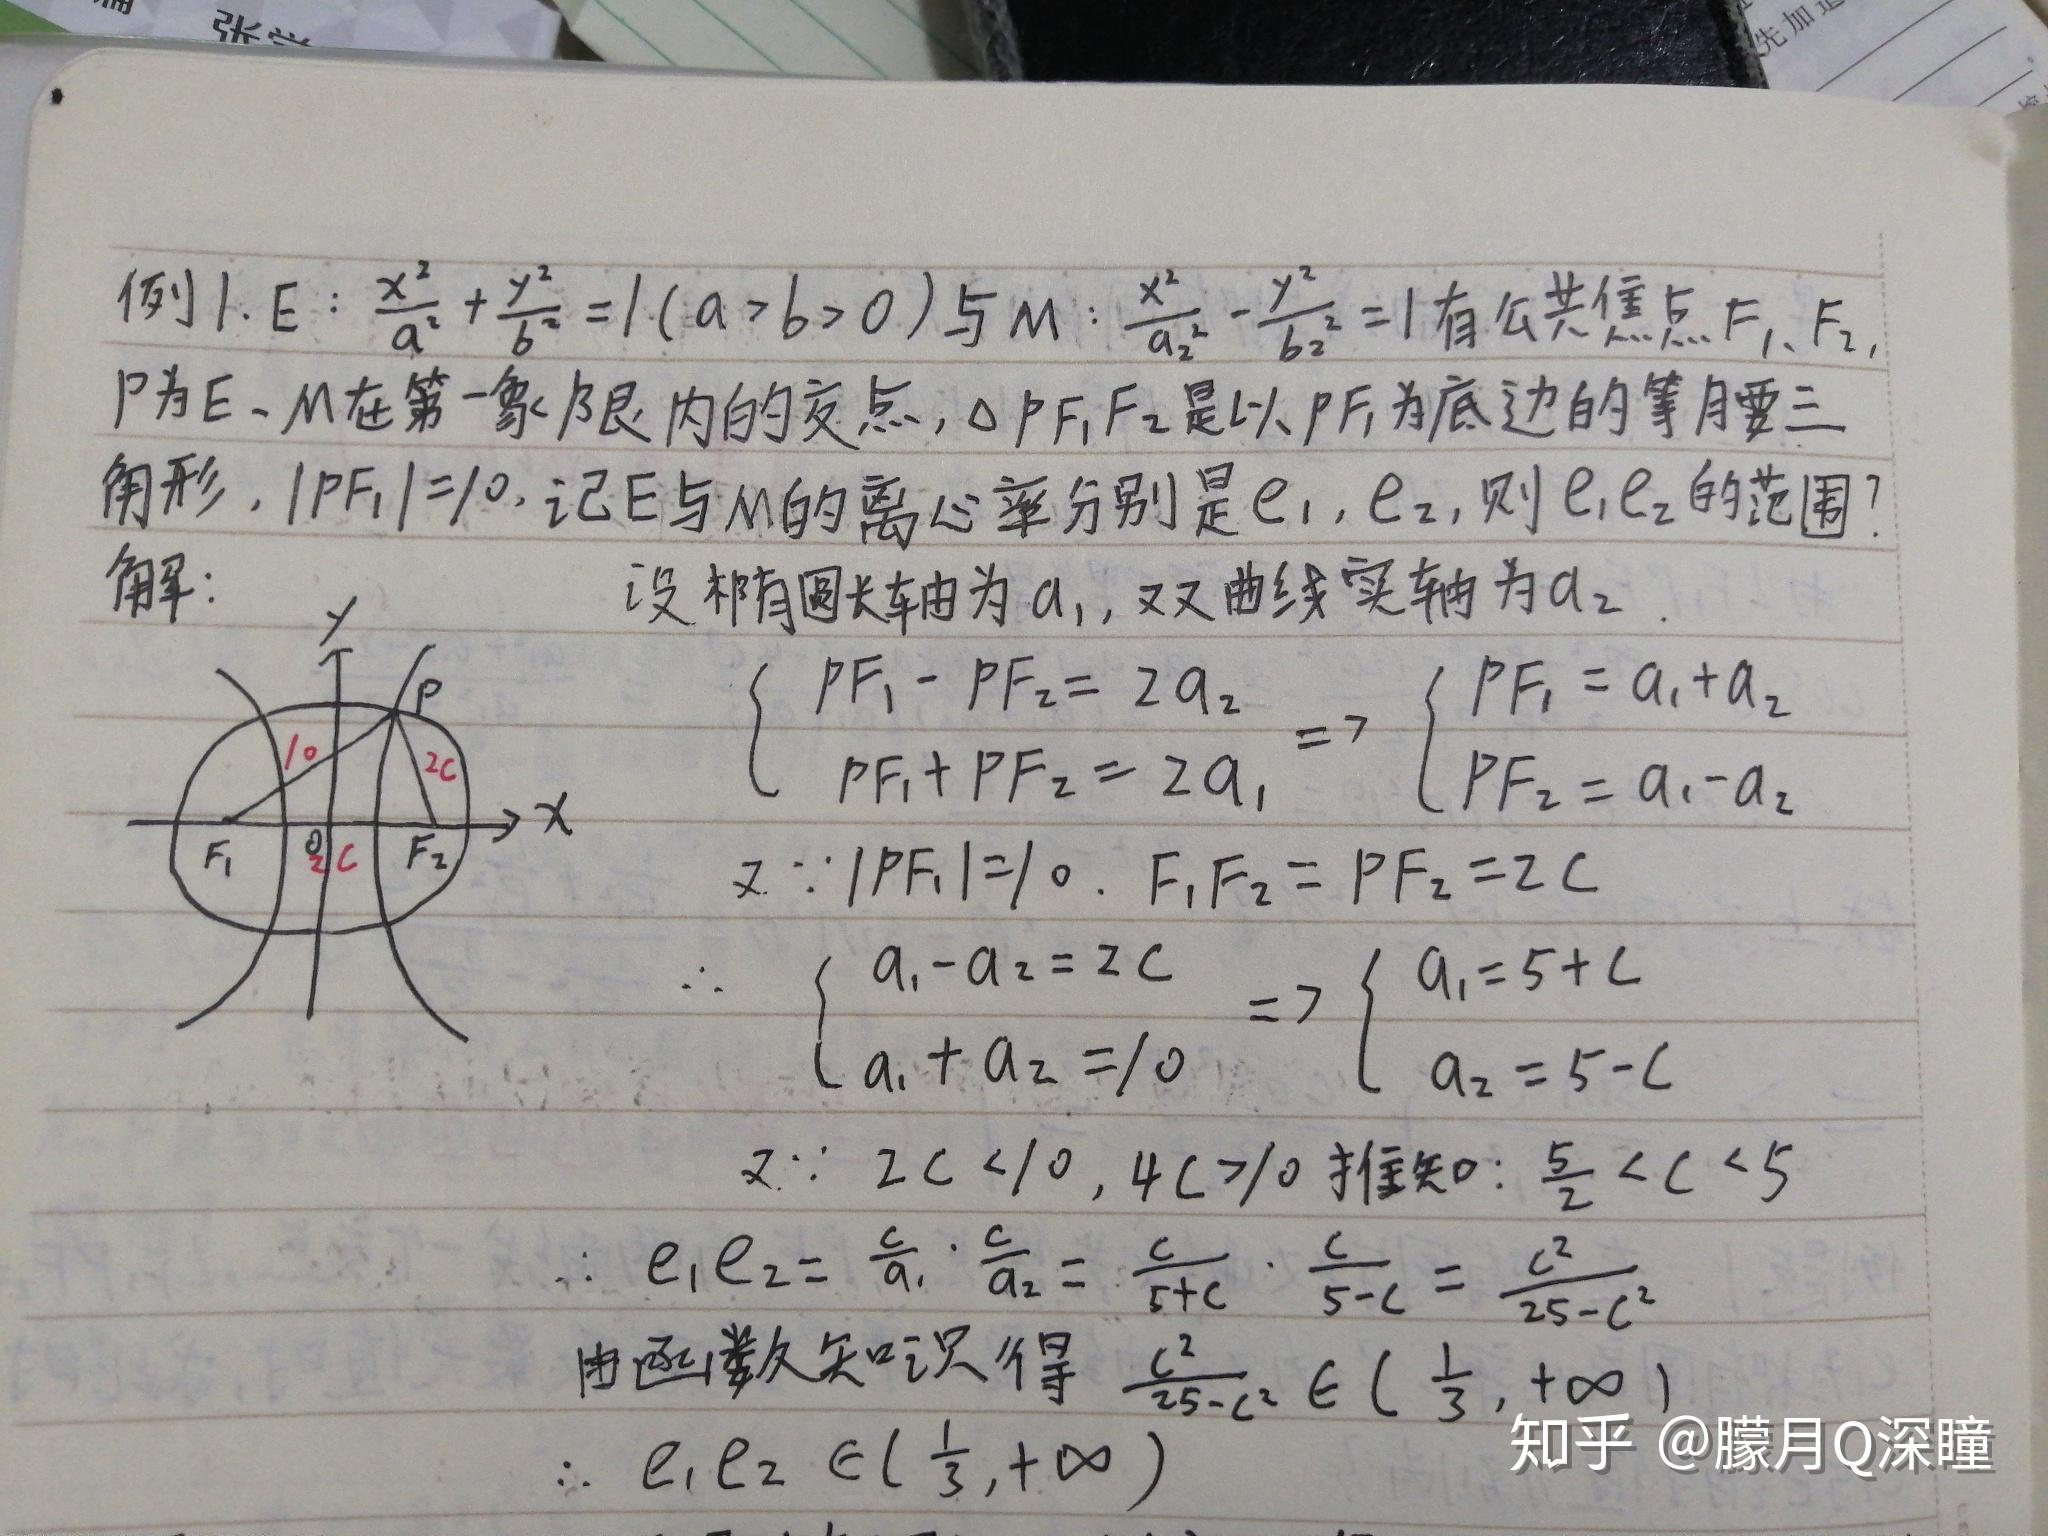 张学
先加
例1. E: x²/a² + y²/b² = 1 (a>b>0) 与 M: x²/a₂² - y²/b₂² = 1 有公共焦点 F₁、F₂,
P为E、M在第一象限内的交点, △PF₁F₂是以PF₁为底边的等腰三
角形, |PF₁|=10, 记E与M的离心率分别是e₁, e₂, 则e₁e₂的范围?
解: 设椭圆长轴为a₁, 双曲线实轴为a₂.
{ PF₁-PF₂=2a₂ => { PF₁=a₁+a₂
PF₁+PF₂=2a₁ PF₂=a₁-a₂
y
P
10
2c
x
F₁ O 2c F₂
又∵|PF₁|=10. F₁F₂=PF₂=2c
∴ { a₁-a₂=2c => { a₁=5+c
a₁+a₂=10 a₂=5-c
又∵ 2c<10, 4c>10 推知: 5/2<c<5
∴ e₁e₂ = c/a₁ · c/a₂ = c/(5+c) · c/(5-c) = c²/(25-c²)
由函数知识得 c²/(25-c²) ∈ (1/3, +∞)
∴ e₁e₂ ∈ (1/3, +∞)
知乎 @朦月Q深瞳